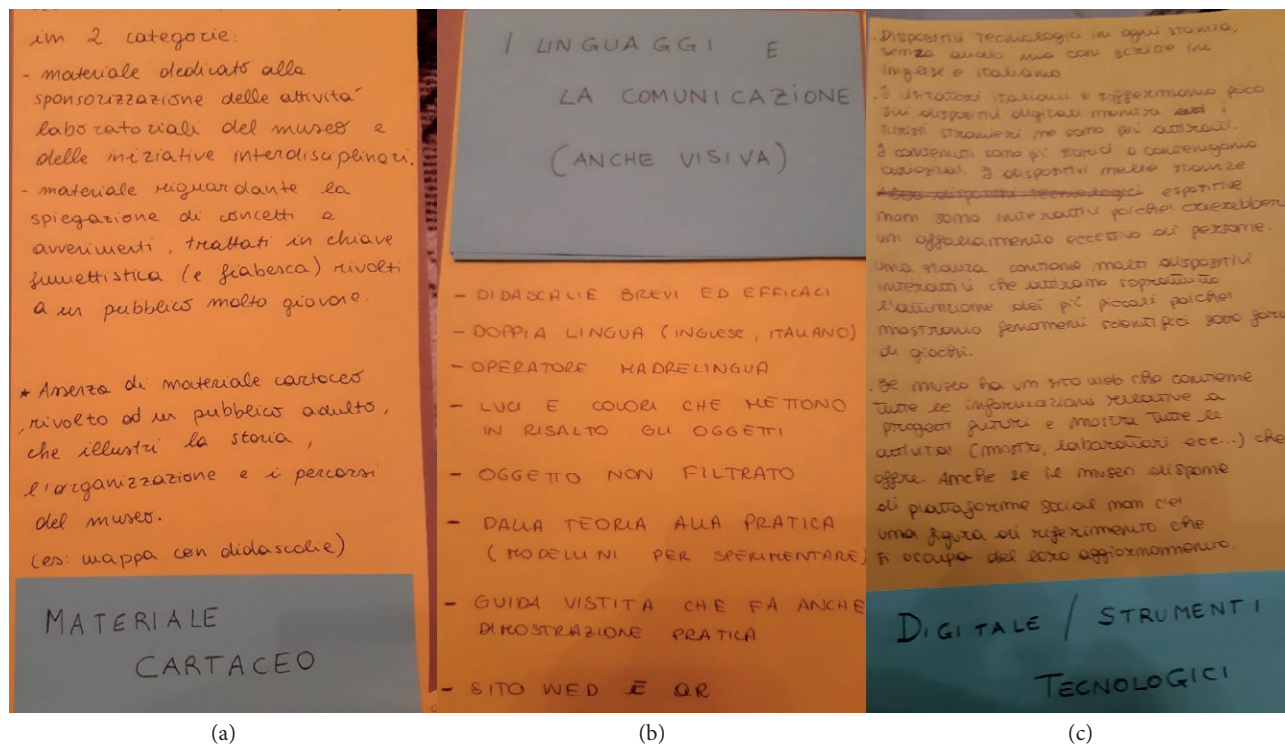 in 2 categorie:
- materiale dedicato alla
sponsorizzazione delle attività
laboratoriali del museo e
delle iniziative interdisciplinari.
- materiale riguardante la
spiegazione di concetti e
avvenimenti, trattati in chiave
fumettistica (e fiabesca) rivolti
a un pubblico molto giovane.
* Assenza di materiale cartaceo
rivolto ad un pubblico adulto,
che illustri la storia,
l'organizzazione e i percorsi
del museo.
(es: mappa con didascalie)
MATERIALE
CARTACEO
(a)
I LINGUAGGI E
LA COMUNICAZIONE
(ANCHE VISIVA)
- DIDASCALIE BREVI ED EFFICACI
- DOPPIA LINGUA (INGLESE, ITALIANO)
- OPERATORE MADRELINGUA
- LUCI E COLORI CHE METTONO
IN RISALTO GLI OGGETTI
- OGGETTO NON FILTRATO
- DALLA TEORIA ALLA PRATICA
(MODELLINI PER SPERIMENTARE)
- GUIDA VISTITA CHE FA ANCHE
DIMOSTRAZIONE PRATICA
- SITO WED E QR
(b)
. Dispositivi tecnologici in ogni stanza,
senza audio ma con scritte in
inglese e italiano
. I visitatori italiani si soffermano poco
sui dispositivi digitali mentre i
turisti stranieri ne sono più attirati.
I contenuti sono più storici o contengono
curiosità. I dispositivi nelle stanze
dispositivi tecnologici espositive
non sono interattivi poichè creerebbero
un affollamento eccessivo di persone.
una stanza contiene molti dispositivi
interattivi che attirano soprattutto
l'attenzione dei più piccoli poichè
mostrano fenomeni scientifici sotto forma
di giochi.
. Il museo ha un sito web che contiene
tutte le informazioni relative a
progetti futuri e mostra tutte le
attività (mostre, laboratori ecc...) che
offre. Anche se il museo dispone
di piattaforme social non c'è
una figura di riferimento che
si occupa del loro aggiornamento.
DIGITALE / STRUMENTI
TECNOLOGICI
(c)